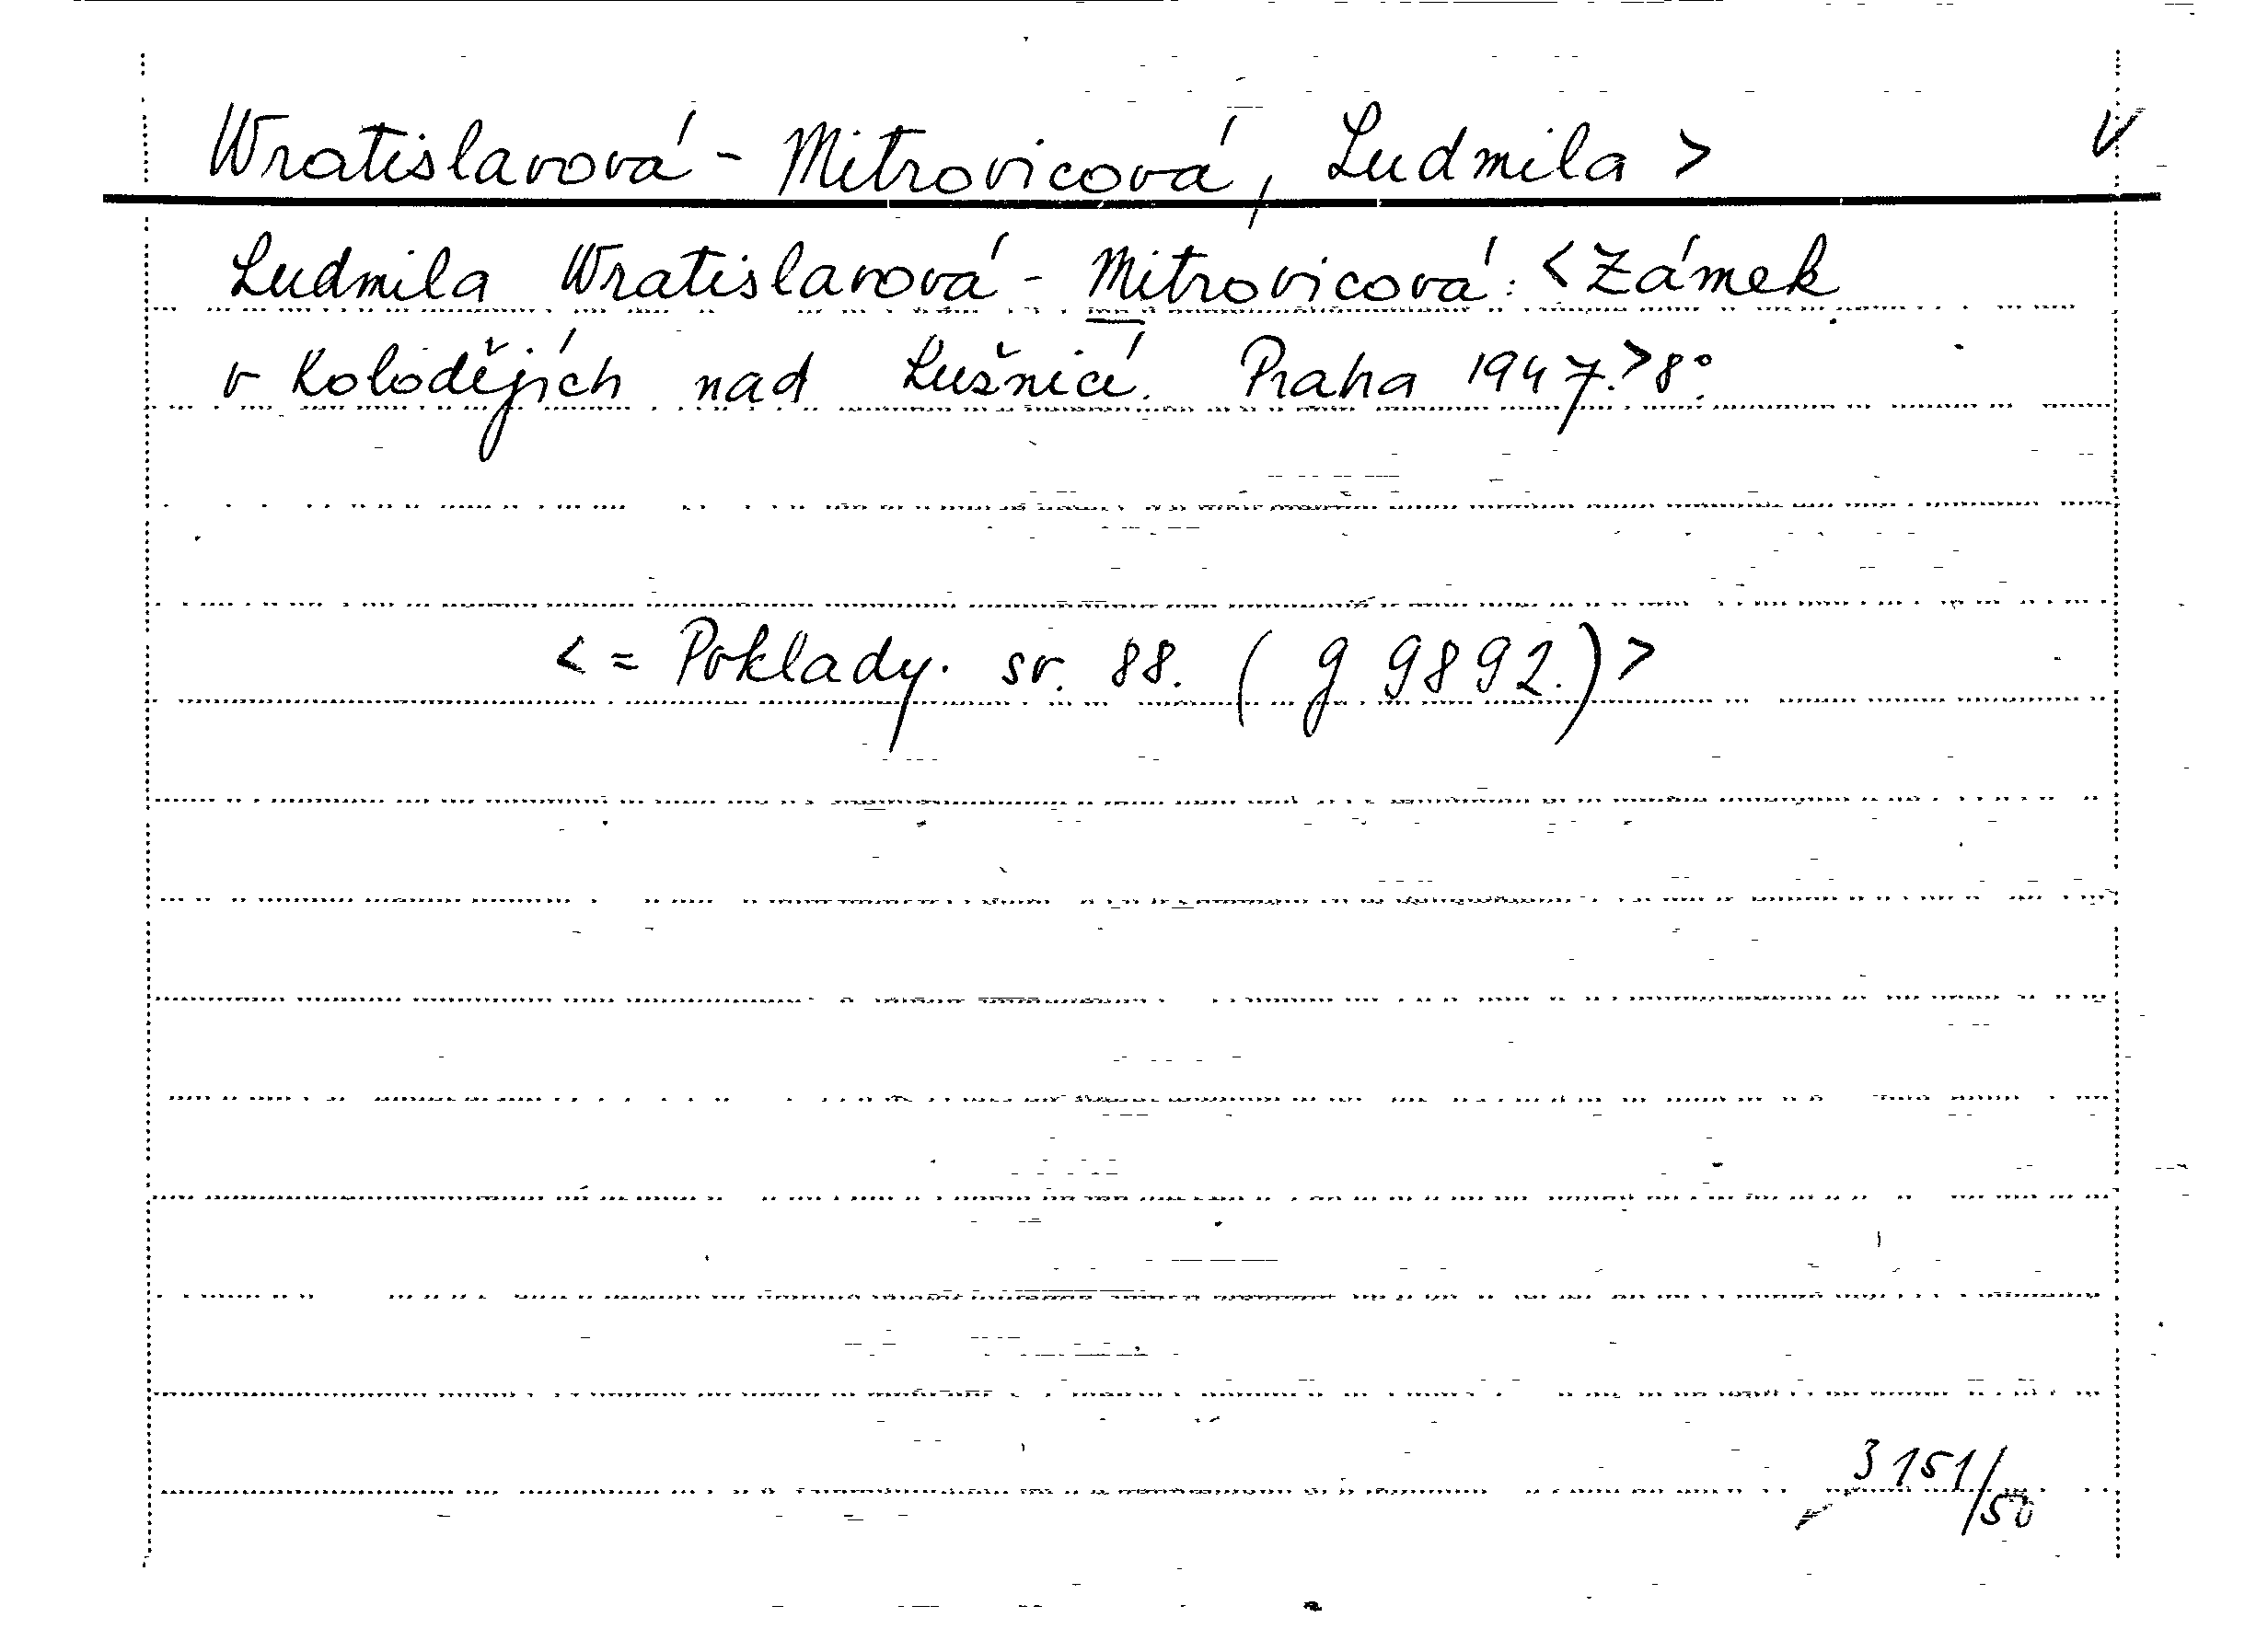 Wratislavová - Mitrovicová, Ludmila >
Ludmila Wratislavová - Mitrovicová: <Zámek
v Kolodějích nad Lušnicí. Praha 1947.> 8°.
< = Poklady. sv. 88. ( g 9892.) >
3151/50